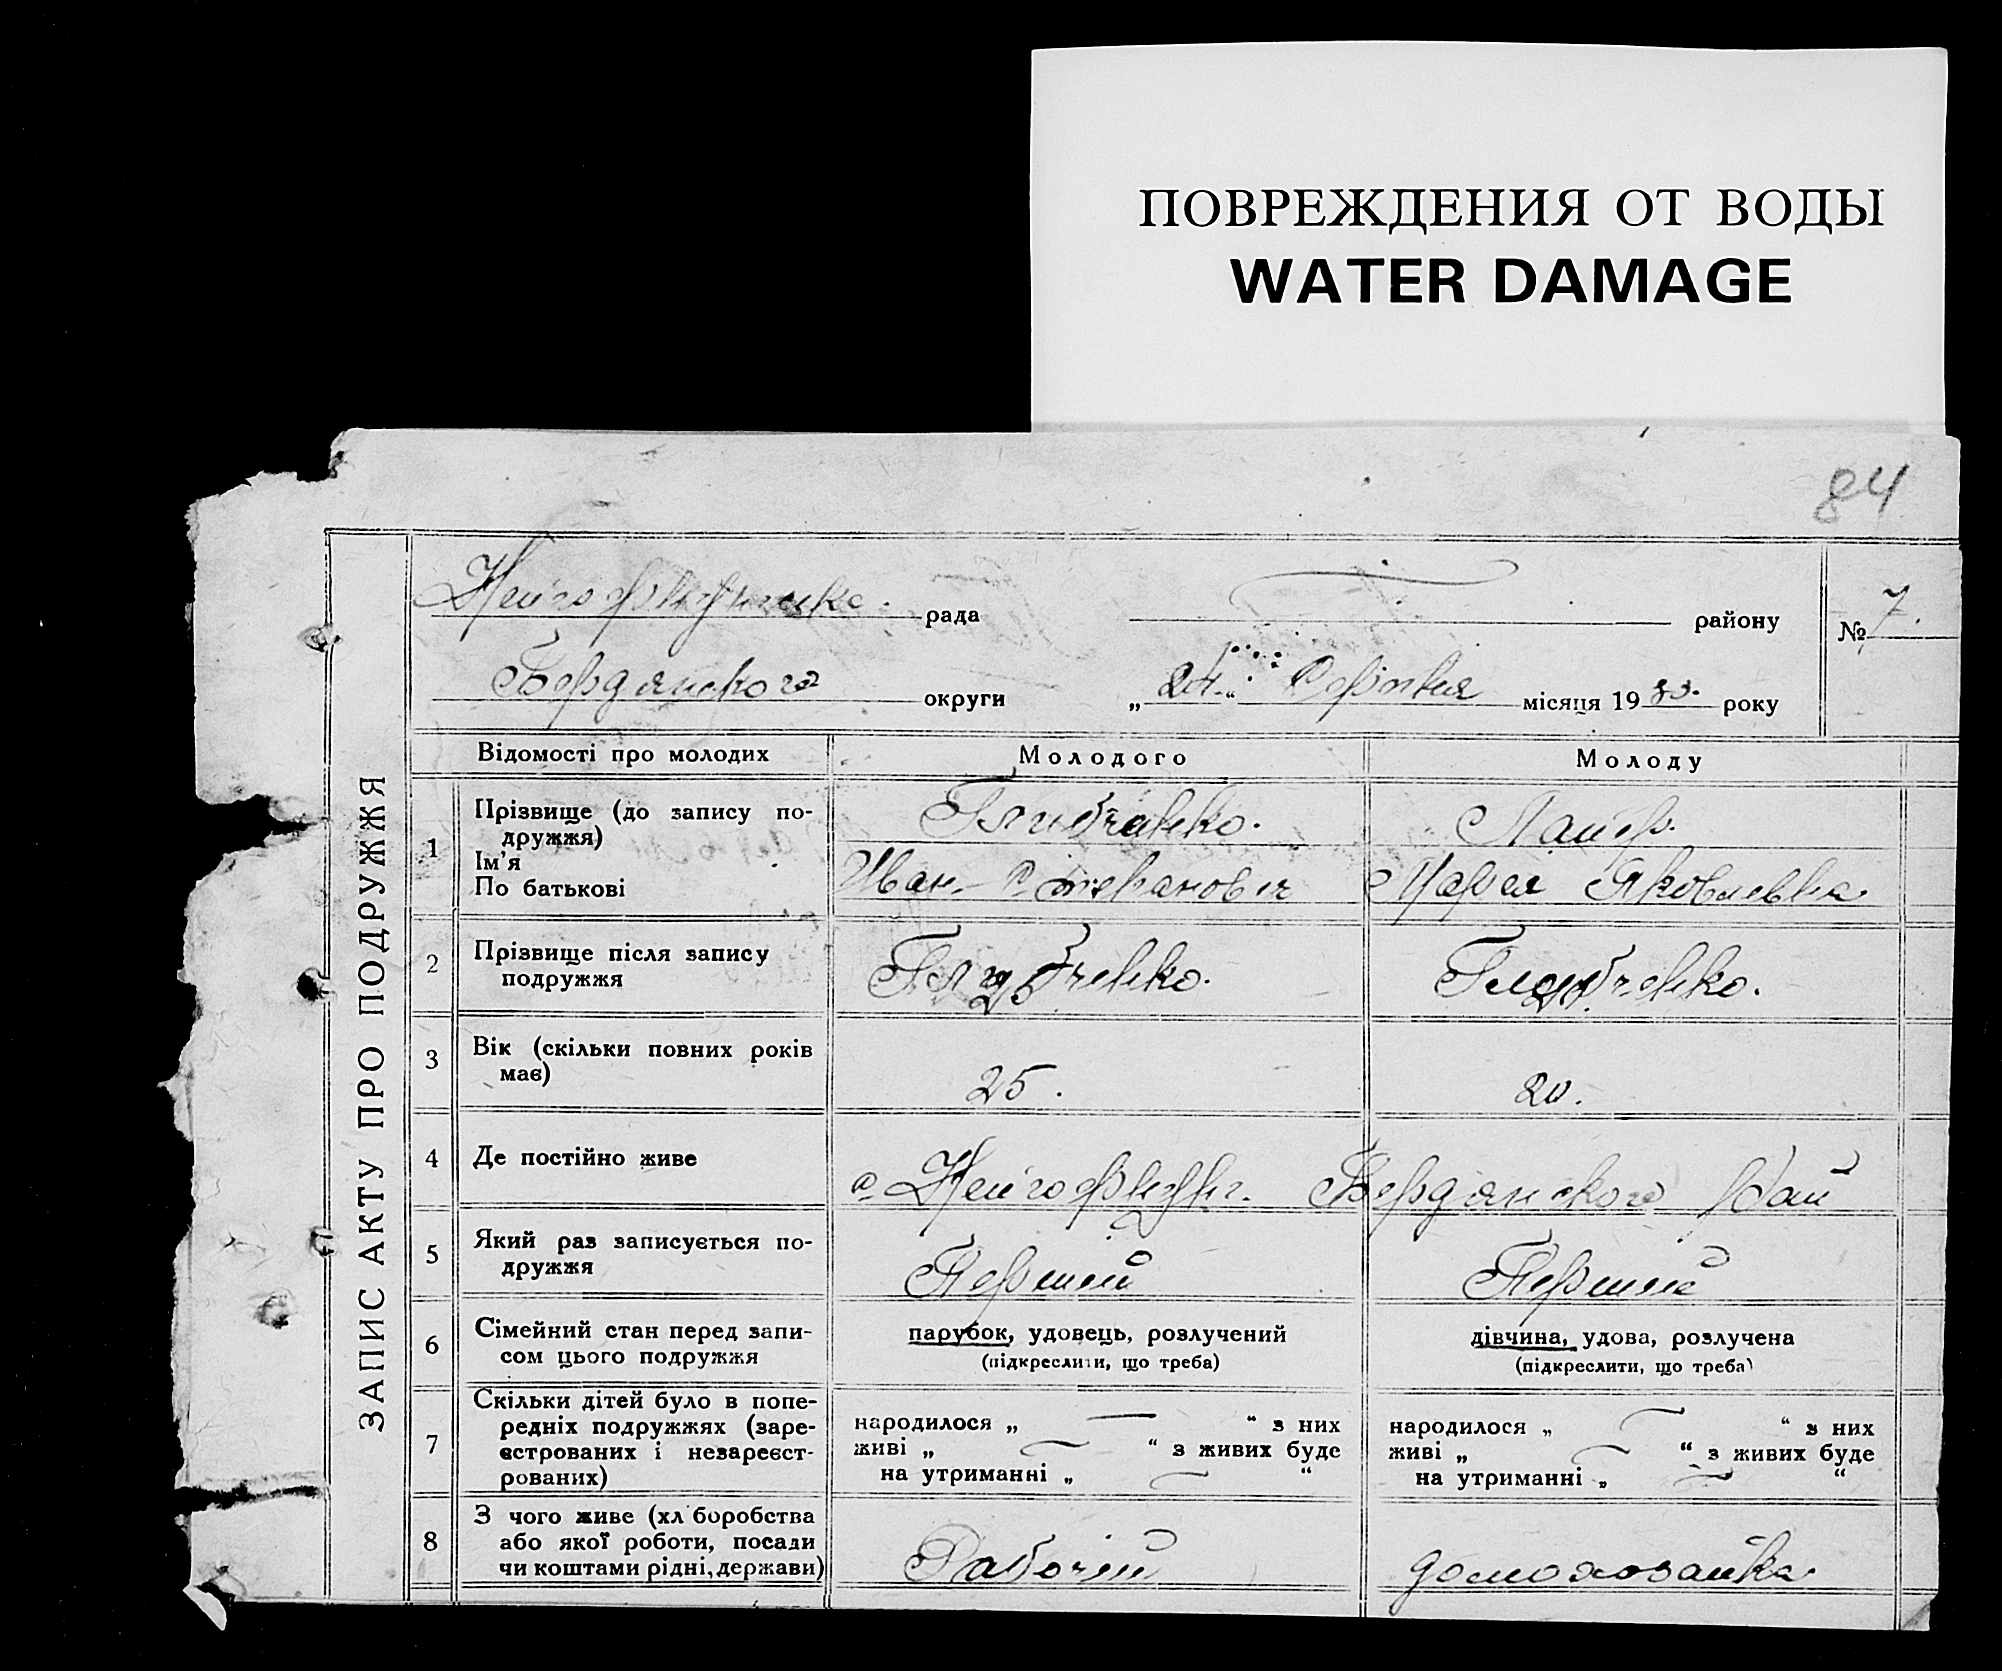 ПОВРЕЖДЕНИЯ ОТ ВОДЫ
WATER DAMAGE
84
ЗАПИС АКТУ ПРО ПОДРУЖЖЯ
рада
району
№ 7.
Бердянского округи
„24“ Серпня місяця 1930. року
Відомості про молодих
Молодого
Молоду
1
Прізвище (до запису по-
дружжя)
Ім'я
По батькові
Майер.
Иван Степанович
Мария Яковлевна
2
Прізвище після запису
подружжя
3
Вік (скільки повних років
має)
25.
20.
4
Де постійно живе
Бердянского Рай
5
Який раз записується по-
дружжя
Перший
Перший
6
Сімейний стан перед запи-
сом цього подружжя
парубок, удовець, розлучений
(підкреслити, що треба)
дівчина, удова, розлучена
(підкреслити, що треба)
7
Скільки дітей було в попе-
редніх подружжях (заре-
єстрованих і незареєст-
рованих)
народилося „ — “ з них
живі „ — “ з живих буде
на утриманні „ — “
народилося „ — “ з них
живі „ — “ з живих буде
на утриманні „ — “
8
З чого живе (хліборобства
або якої роботи, посади
чи коштами рідні, держави)
Рабочий
домохозайка